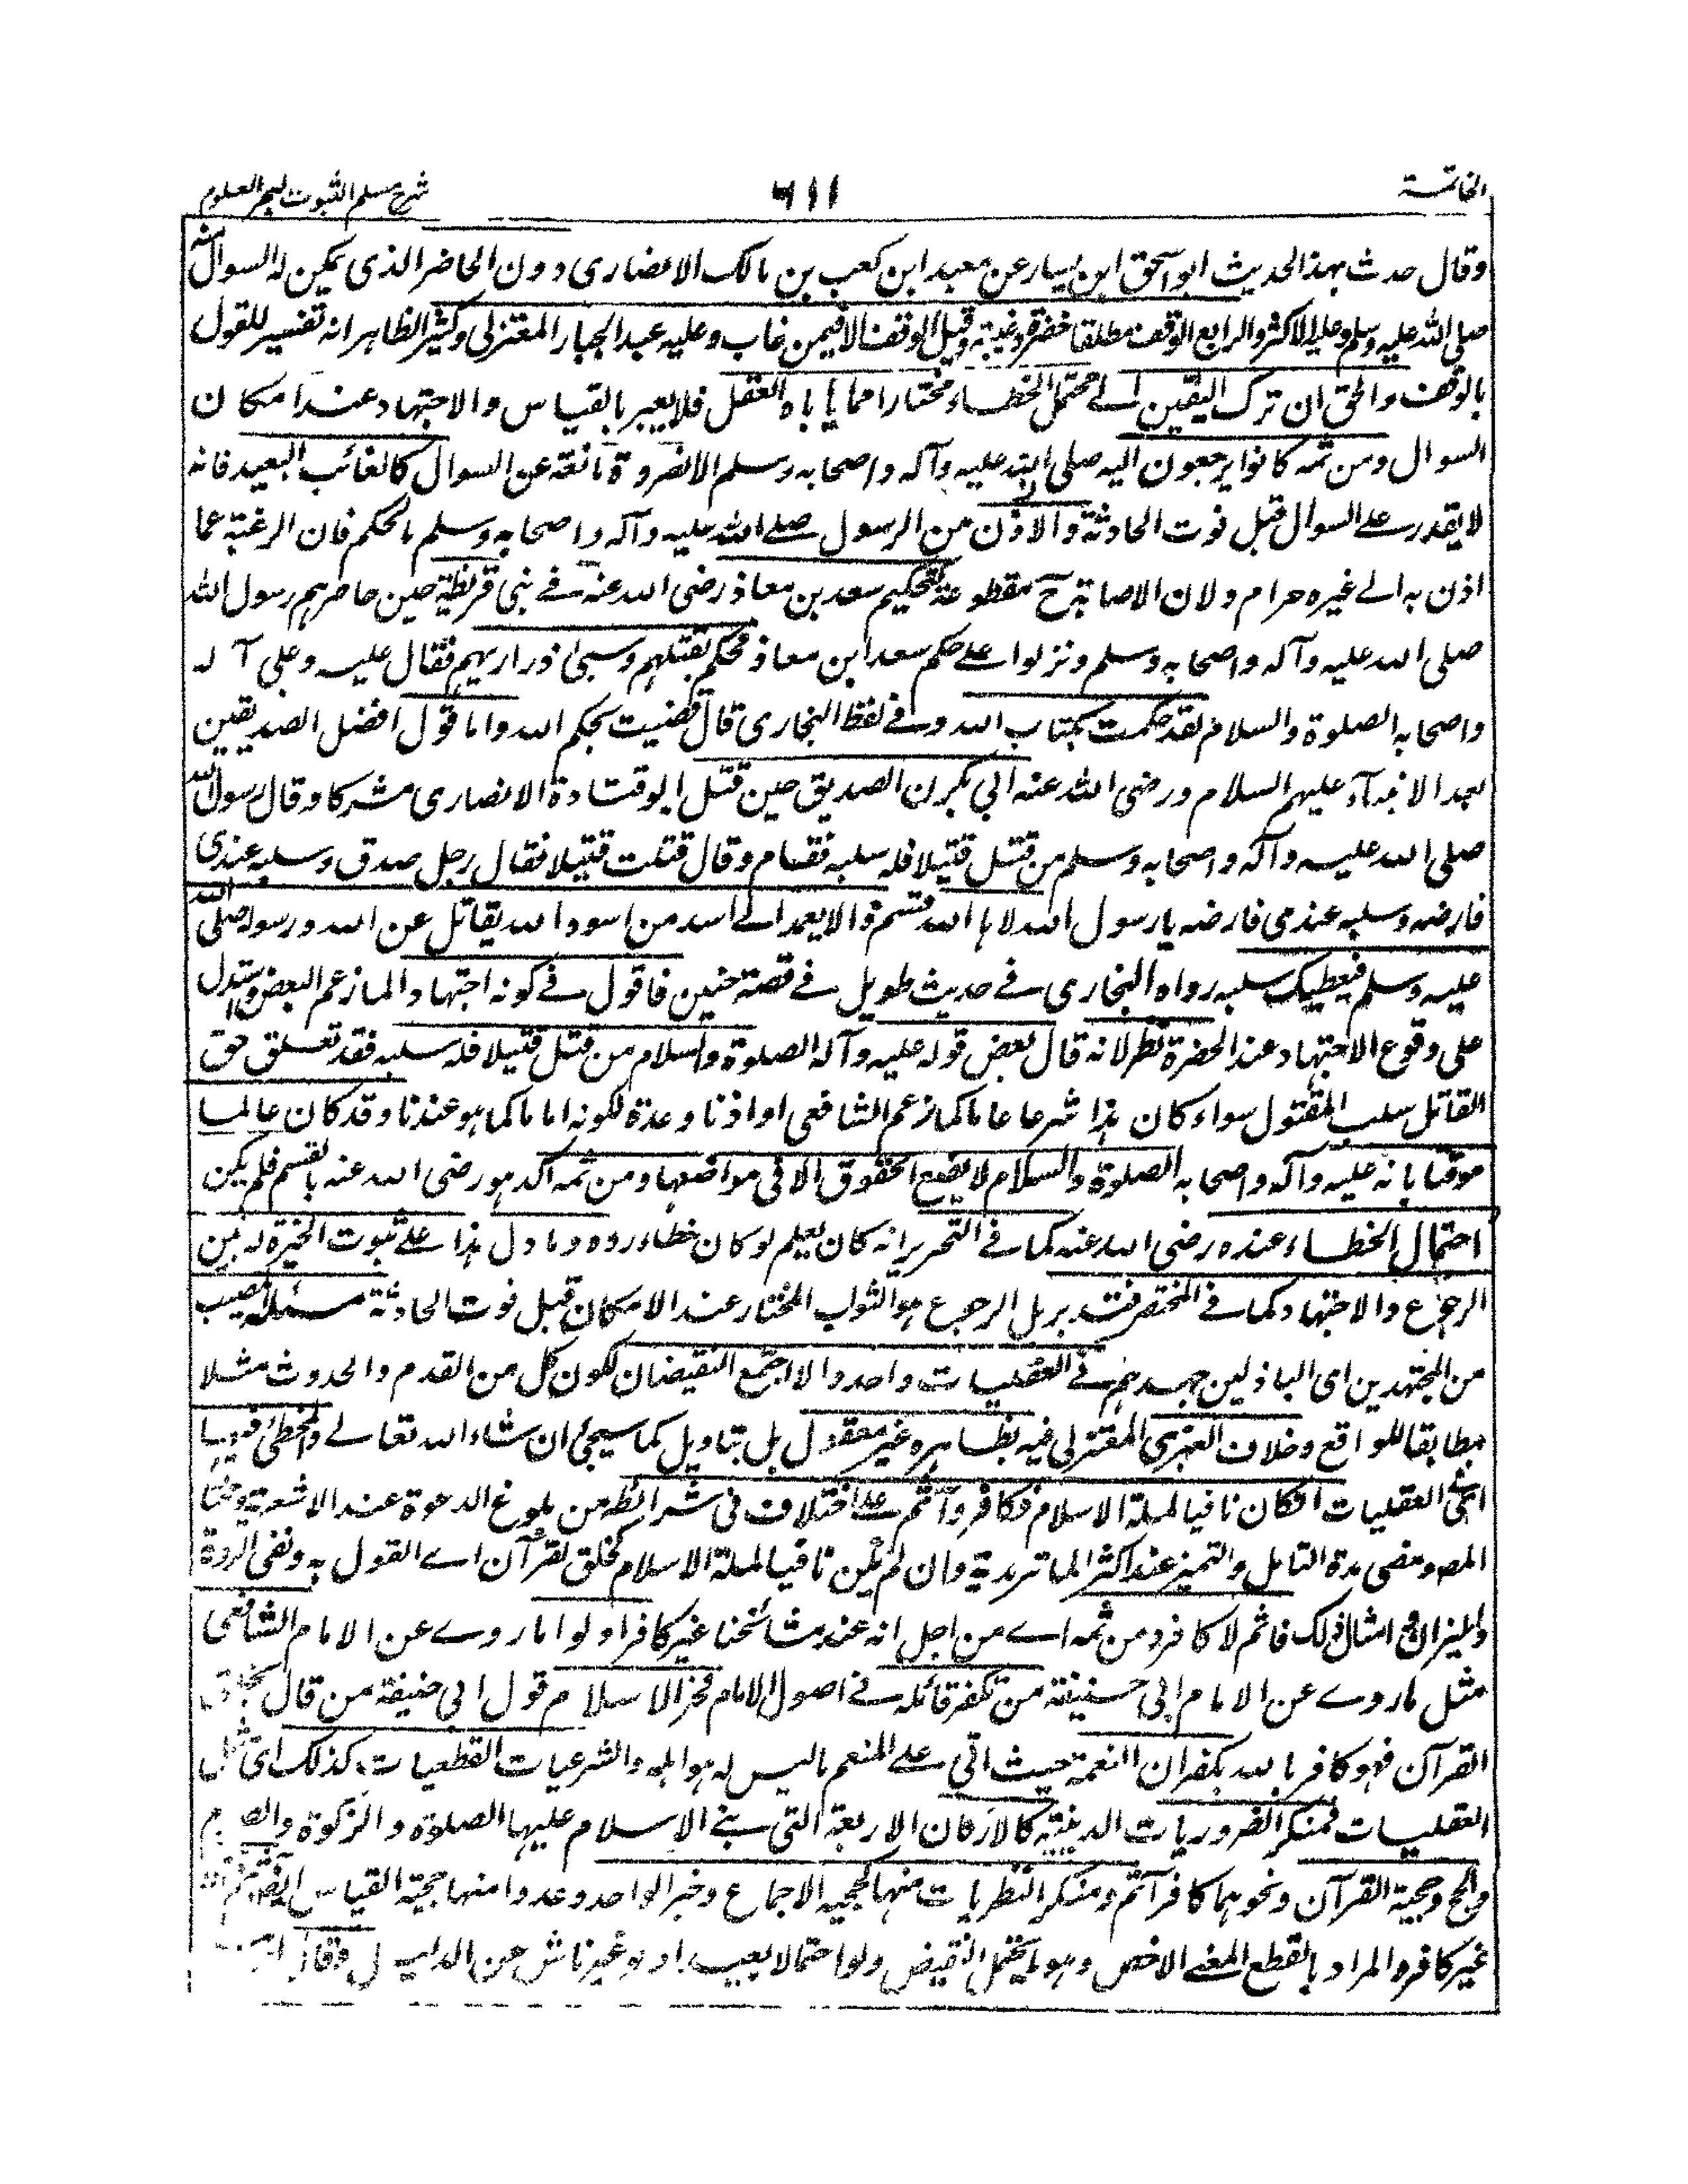 الخاتمة
٦١١
شرح مسلم الثبوت لبحر العلوم
وقال حدث بهذا الحديث ابو اسحق ابن يسار عن معبد ابن كعب بن مالك الانصاري دون الحاضر الذي يمكن له السوال منه
صلى الله عليه وسلم وعليه الاكثر والرابع الوقف مطلقا حضرة وغيبة وقيل الوقف الا فيمن غاب وعليه عبد الجبار المعتزلي وكثير الظاهر انه تفسير للقول
بالوقف والحق ان ترك اليقين الى محتمل الخطاء مختارا مما يا باه العقل فلا يعبر بالقياس والاجتهاد عند امكان
السوال ومن ثمه كانوا يرجعون اليه صلى الله عليه وآله واصحابه وسلم الا لضرورة مانعة عن السوال كالغائب البعيد فانه
لا يقدر على السوال قبل فوت الحادثة والاذن من الرسول صلى الله عليه وآله واصحابه وسلم بالحكم فان الرغبة عما
اذن به الى غيره حرام ولان الاصابة ح مقطوعة كتحكيم سعد بن معاذ رضى الله عنه في بني قريظة حين حاصرهم رسول الله
صلى الله عليه وآله واصحابه وسلم ونزلوا على حكم سعد ابن معاذ فحكم بقتلهم وسبى ذراريهم فقال عليه وعلى آله
واصحابه الصلوة والسلام لقد حكمت بكتاب الله وفي لفظ البخاري قال قضيت بحكم الله واما قول افضل الصديقين
بعد الانبيآء عليهم السلام ورضى الله عنه ابي بكرن الصديق حين قتل ابو قتادة الانصاري مشركا وقال رسول الله
صلى الله عليه وآله واصحابه وسلم من قتل قتيلا فله سلبه فقام وقال قتلت قتيلا فقال رجل صدق وسلبه عندي
فارضه وسلبه عندي فارضه يا رسول الله لا ها الله قسم اذا لا يعمد الى اسد من اسود الله يقاتل عن الله ورسوله صلى الله
عليه وسلم فيعطيك سلبه رواه البخاري في حديث طويل في قصة حنين فاقول في كونه اجتهادا لما زعم البعض واستدل
على وقوع الاجتهاد عند الحضرة نظر لانه قال بعض قوله عليه وآله الصلوة والسلام من قتل قتيلا فله سلبه فقد تعلق حق
القاتل سلب المقتول سواء كان هذا شرعا عاما كما زعم الشافعي او اذنا وعدة لكونه اماما كما هو عندنا وقد كان عالما
موقنا بانه عليه وآله واصحابه الصلوة والسلام لا يضع الحقوق الا في مواضعها ومن ثمه اكد هو رضى الله عنه بالقسم فلم يكن
احتمال الخطاء عنده رضى الله عنه كما في التحرير انه كان يعلم لو كان خطاء رده وما دل هذا على ثبوت الخيرة له بين
الرجوع والاجتهاد كما في المختصر فتدبر بل الرجوع هو الثواب المختار عند الامكان قبل فوت الحادثة مسئلة المصيب
من المجتهدين اى الباذلين جهدهم في العقليات واحد والا اجتمع النقيضان لكون كل من القدم والحدوث مثلا
مطابقا للواقع وخلاف العنبري المعتزلي فيه بظاهره غير معقول بل بتاويل كما سيجئ ان شاء الله تعالى والمخطئ فيها
اى في العقليات ان كان نافيا لملة الاسلام فكافر وآثم على اختلاف في شرائطه من بلوغ الدعوة عند الاشعرية ومختار
المصـ ومضى مدة التامل والتميز عند اكثر الماتريدية وان لم يكن نافيا لملة الاسلام كخلق القرآن اى القول به ونفى الرؤية
والميزان وامثال ذلك فاثم لا كافر ومن ثمه اى من اجل انه عند مشائخنا غير كافر اولوا ما روى عن الامام الشافعي
مثل ما روى عن الامام ابي حنيفة من تكفر قائله في اصول الامام فخر الاسلام قول ابي حنيفة من قال بخلق
القرآن فهو كافر بالله بكفران النعمة حيث اتى على المنعم ما ليس له هو اهله والشرعيات القطعيات كذلك اى مثل
العقليات فمنكر الضروريات الدينية كالاركان الاربعة التي بني الاسلام عليها الصلوة والزكوة والصوم
والحج وحجية القرآن ونحوهما كافر آثم ومنكر النظريات منها كحجية الاجماع وخبر الواحد وعدوا منها حجية القياس ايضا آثم
غير كافر والمراد بالقطع المعنى الاخص وهو ما يحتمل النقيض ولو احتمالا بعيدا ولو غير ناش عن الدليل وقال